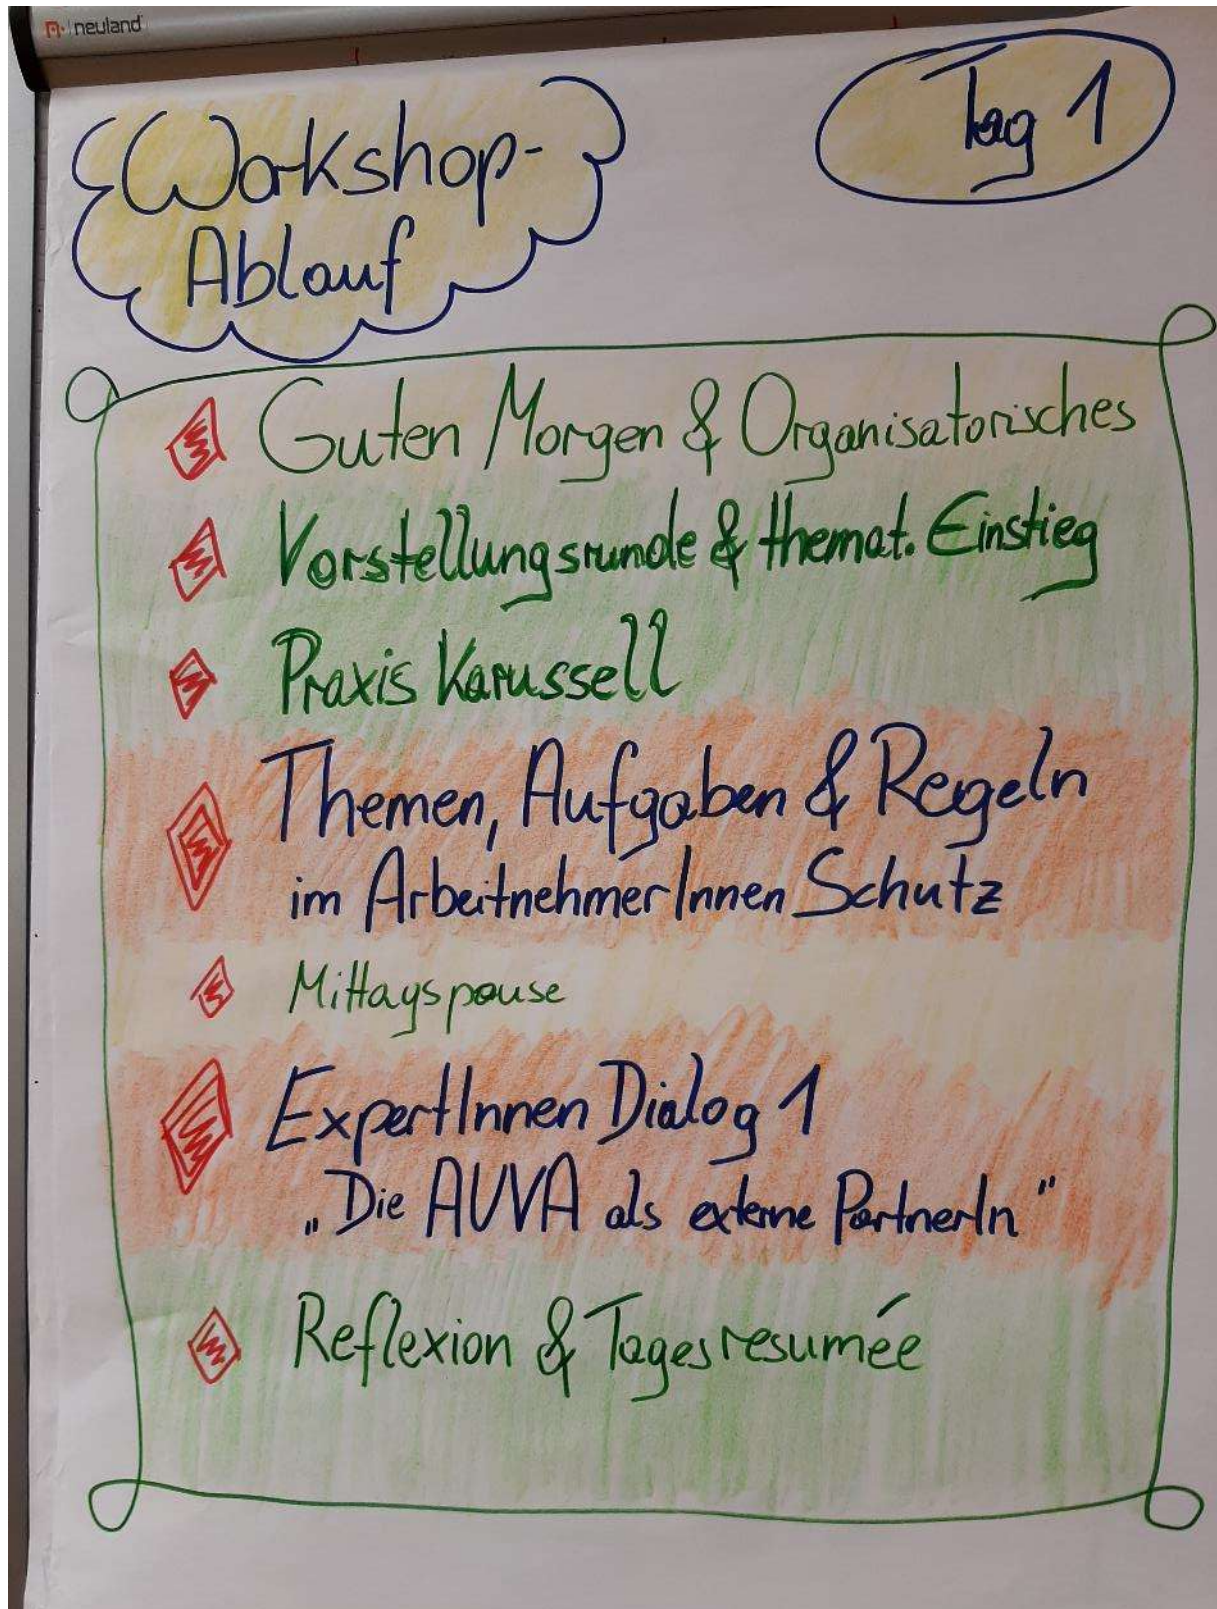 neuland
Workshop-
Ablauf
Tag 1
Guten Morgen & Organisatorisches
Vorstellungsrunde & themat. Einstieg
Praxis Karussell
Themen, Aufgaben & Regeln
im ArbeitnehmerInnen Schutz
Mittagspause
ExpertInnen Dialog 1
„Die AUVA als externe PartnerIn"
Reflexion & Tagesresumée